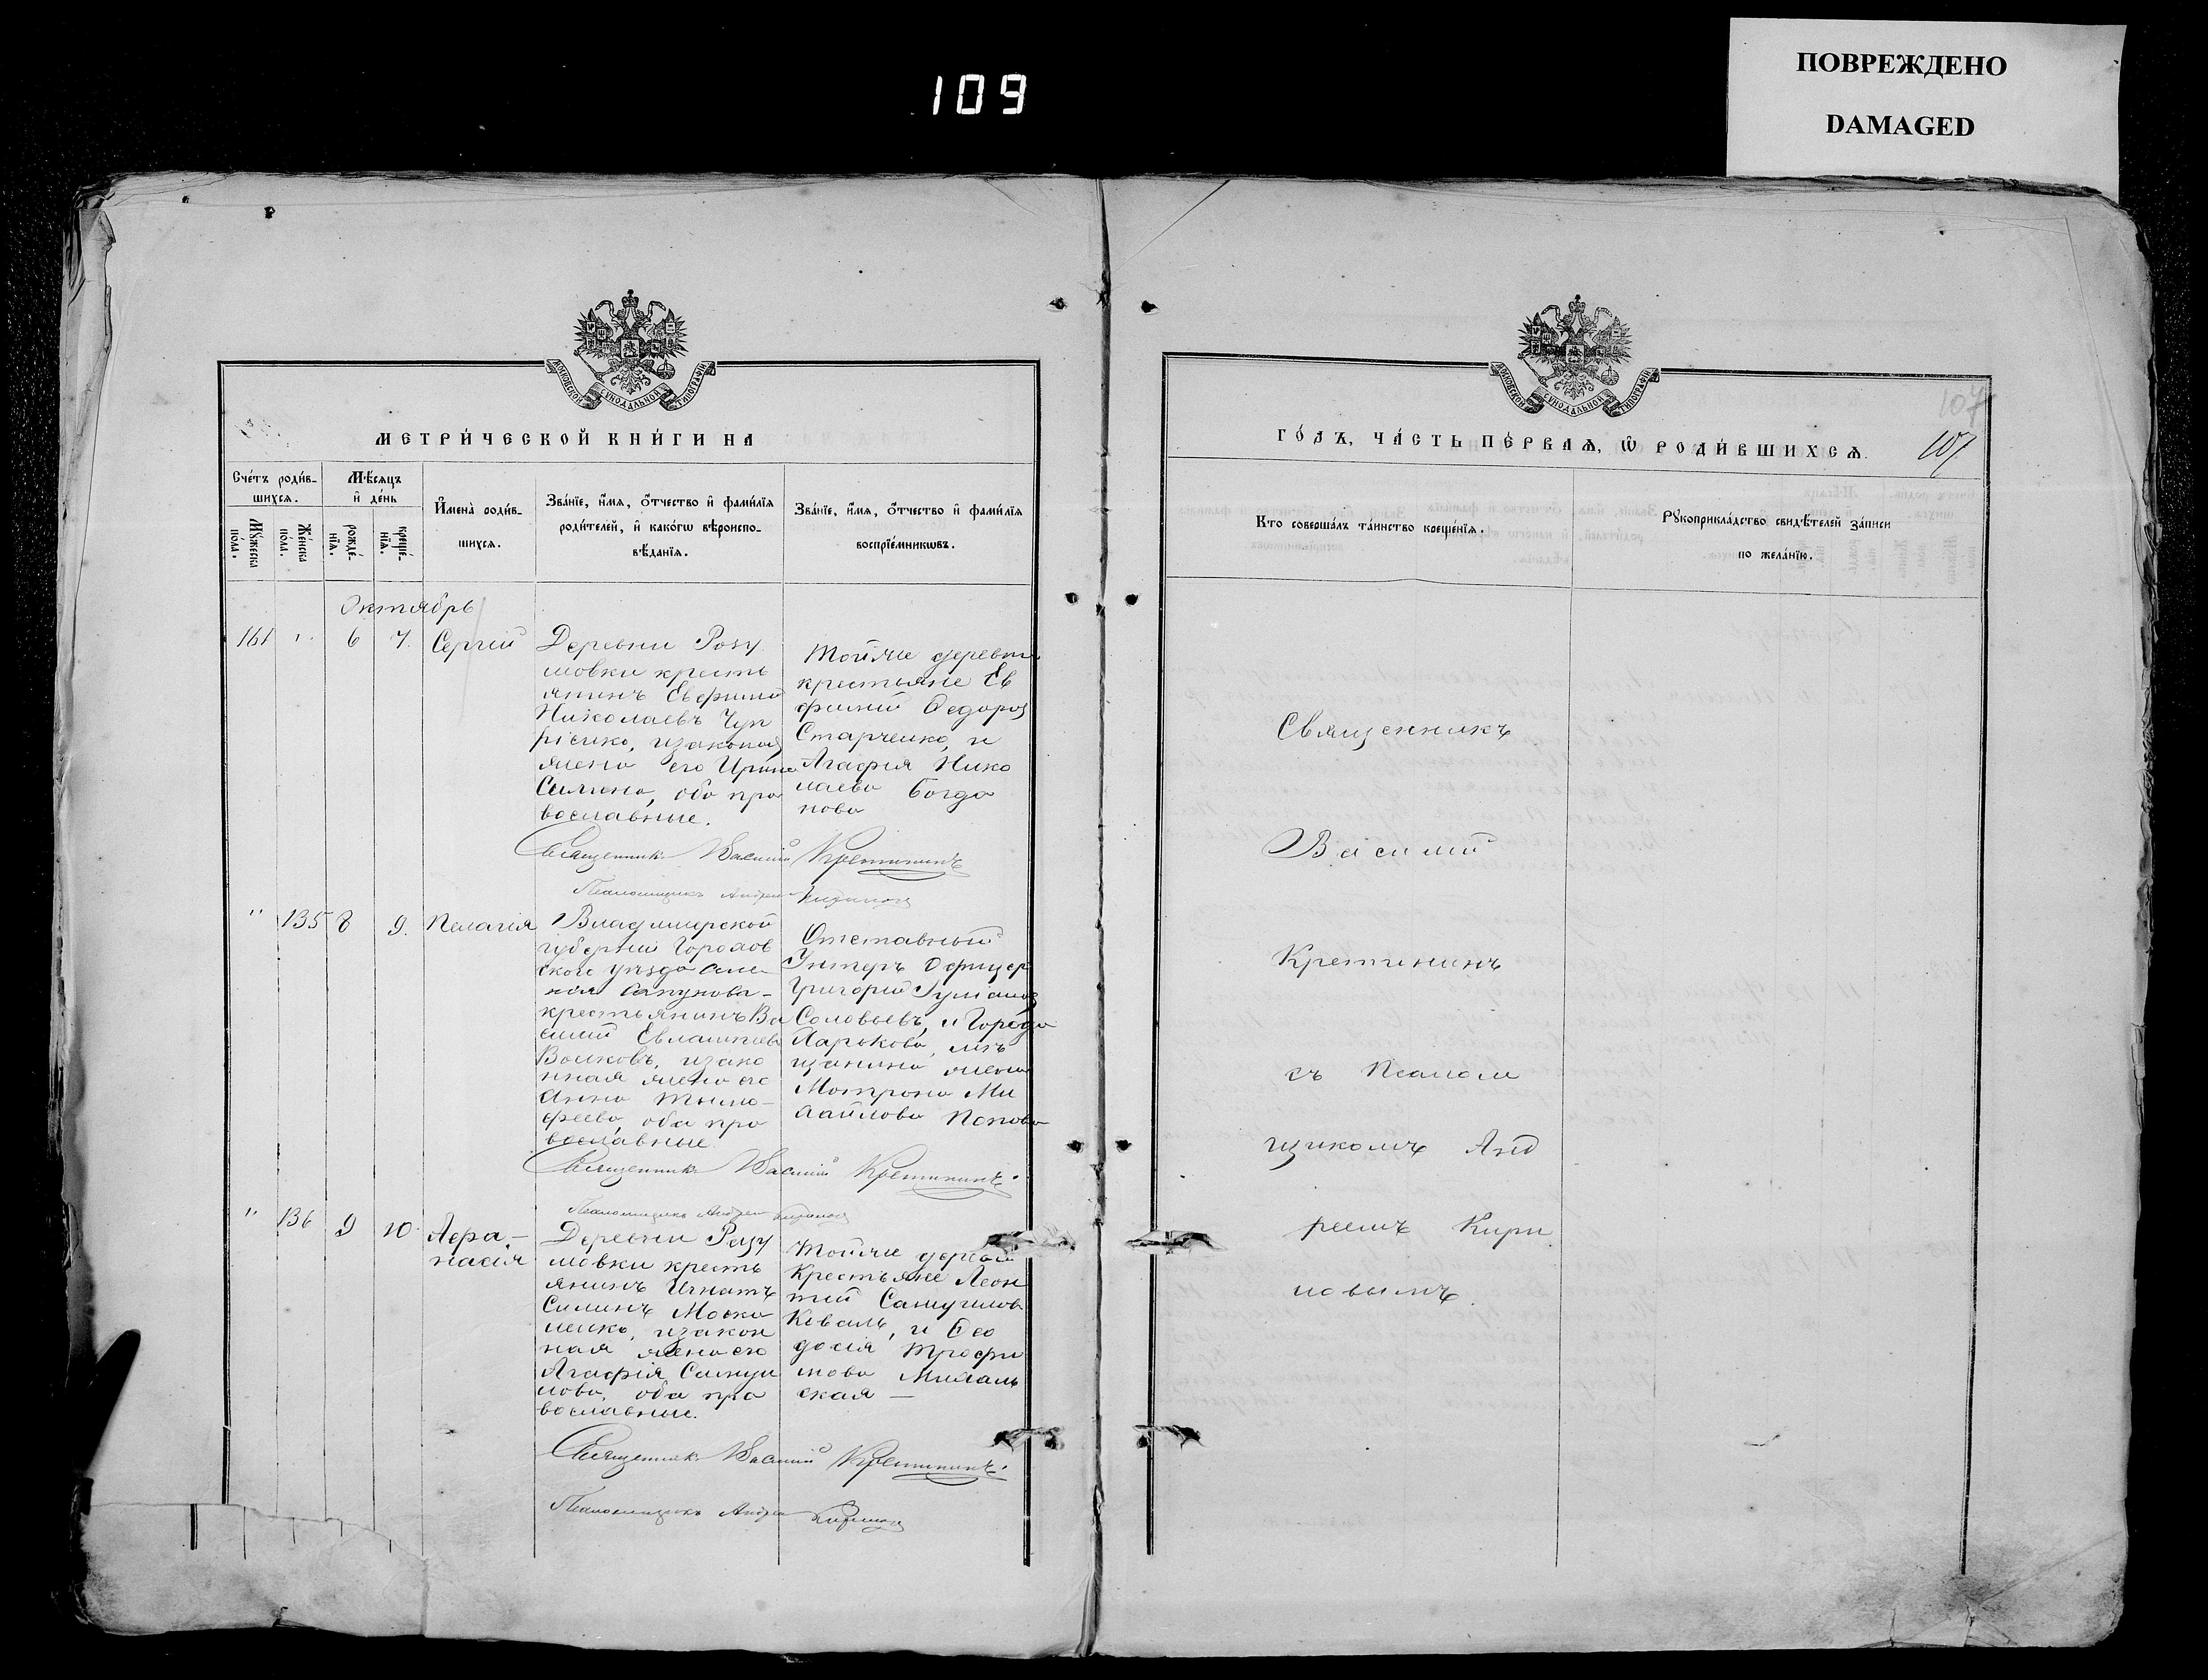 ПОВРЕЖДЕНО
DAMAGED
109
МОСКОВСКОЙ СѴНОДАЛЬНОЙ ТИПОГРАФІИ
МЕТРИ́ЧЕСКОЙ КНИ́ГИ НА
Сче́тъ роди́в-
шихся.
Мѣ́сяцъ
и҆ де́нь
Мꙋ́жеска
по́ла.
Же́нска
по́ла.
рожде́-
нїѧ.
креще́-
нїѧ.
И҆мена̀ роди́в-
шихся.
Зва́нїе, и҆́мѧ, ѻ҆́тчество и҆ фами́лїѧ
роди́телей, и҆ како́гѡ вѣроиспо-
вѣ́данїѧ.
Зва́нїе, и҆́мѧ, ѻ҆́тчество и҆ фами́лїѧ
воспрїе́мникѡвъ.
Октябрь
161 " 6 7. Сергій
Деревни Розу
мовки кресть
янинъ Евфимій
Николаевъ Чуп
рiенко, изаконая
жена его Ирина
Силина, оба пра
вославные.
Тойже деревни
крестьяне Ев
фимій Федоров
Старченко, и
Агафія Нико
лаева Богда
нова
Священникъ Василій Кретининъ
Псаломщикъ Андрей Кириловъ
" 135 8 9. Пелагія
Владимирской
губерніи Горохов
скаго уѣзда
крестьянинъ Ва
силій Евлампіев
Волковъ, изако
нная жена его
Анна Тимо-
феева, оба пра
вославные
Отставный
Унтеръ Офицер
Григорій
Соловьевъ, и Города
Харькова, мѣ
щанина жена
Матрона Ми
хайлова Попова
Священникъ Василій Кретининъ.
Псаломщикъ Андрей Кириловъ
" 136 9 10 Афа-
насія
Деревни Розу
мовки кресть
янинъ Игнатъ
Силинъ Моска
ленко, изакон
ная жена его
Агафія Самуи
лова, оба пра
вославные.
Тойже деревни
Крестьяне Леон
тій Самуилов
Коваль, и Фео
досія Трофи
мова Михаль
ская —
Священникъ Василій Кретининъ.
Псаломщикъ Андрей Кириловъ
МОСКОВСКОЙ СѴНОДАЛЬНОЙ ТИПОГРАФІИ
ГО́ДЪ, ЧА́СТЬ ПЕ́РВАѦ, Ѡ҆ РОДИ́ВШИХСѦ.
107
107
Кто соверша́лъ та́инство креще́нїѧ.
Рꙋкоприкла́дство свидѣ́телей за́писи
по жела́нїю.
Священникъ
Василій
Кретининъ
съ Псалом
щикомъ Анд
реемъ Кири
ловымъ.